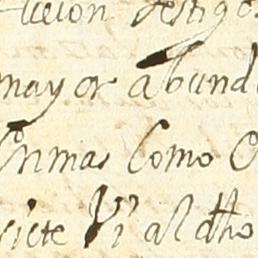 ucion testigo
mayor abund
Enmas Como C
siete Vi al dho